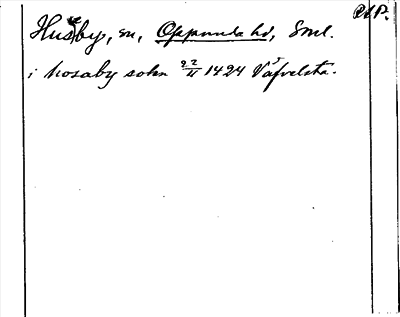 PAP.
Huseby, sn, Oppunda hd, Sml.
i hosaby sokn 22/11 1424 Vafvelsta.